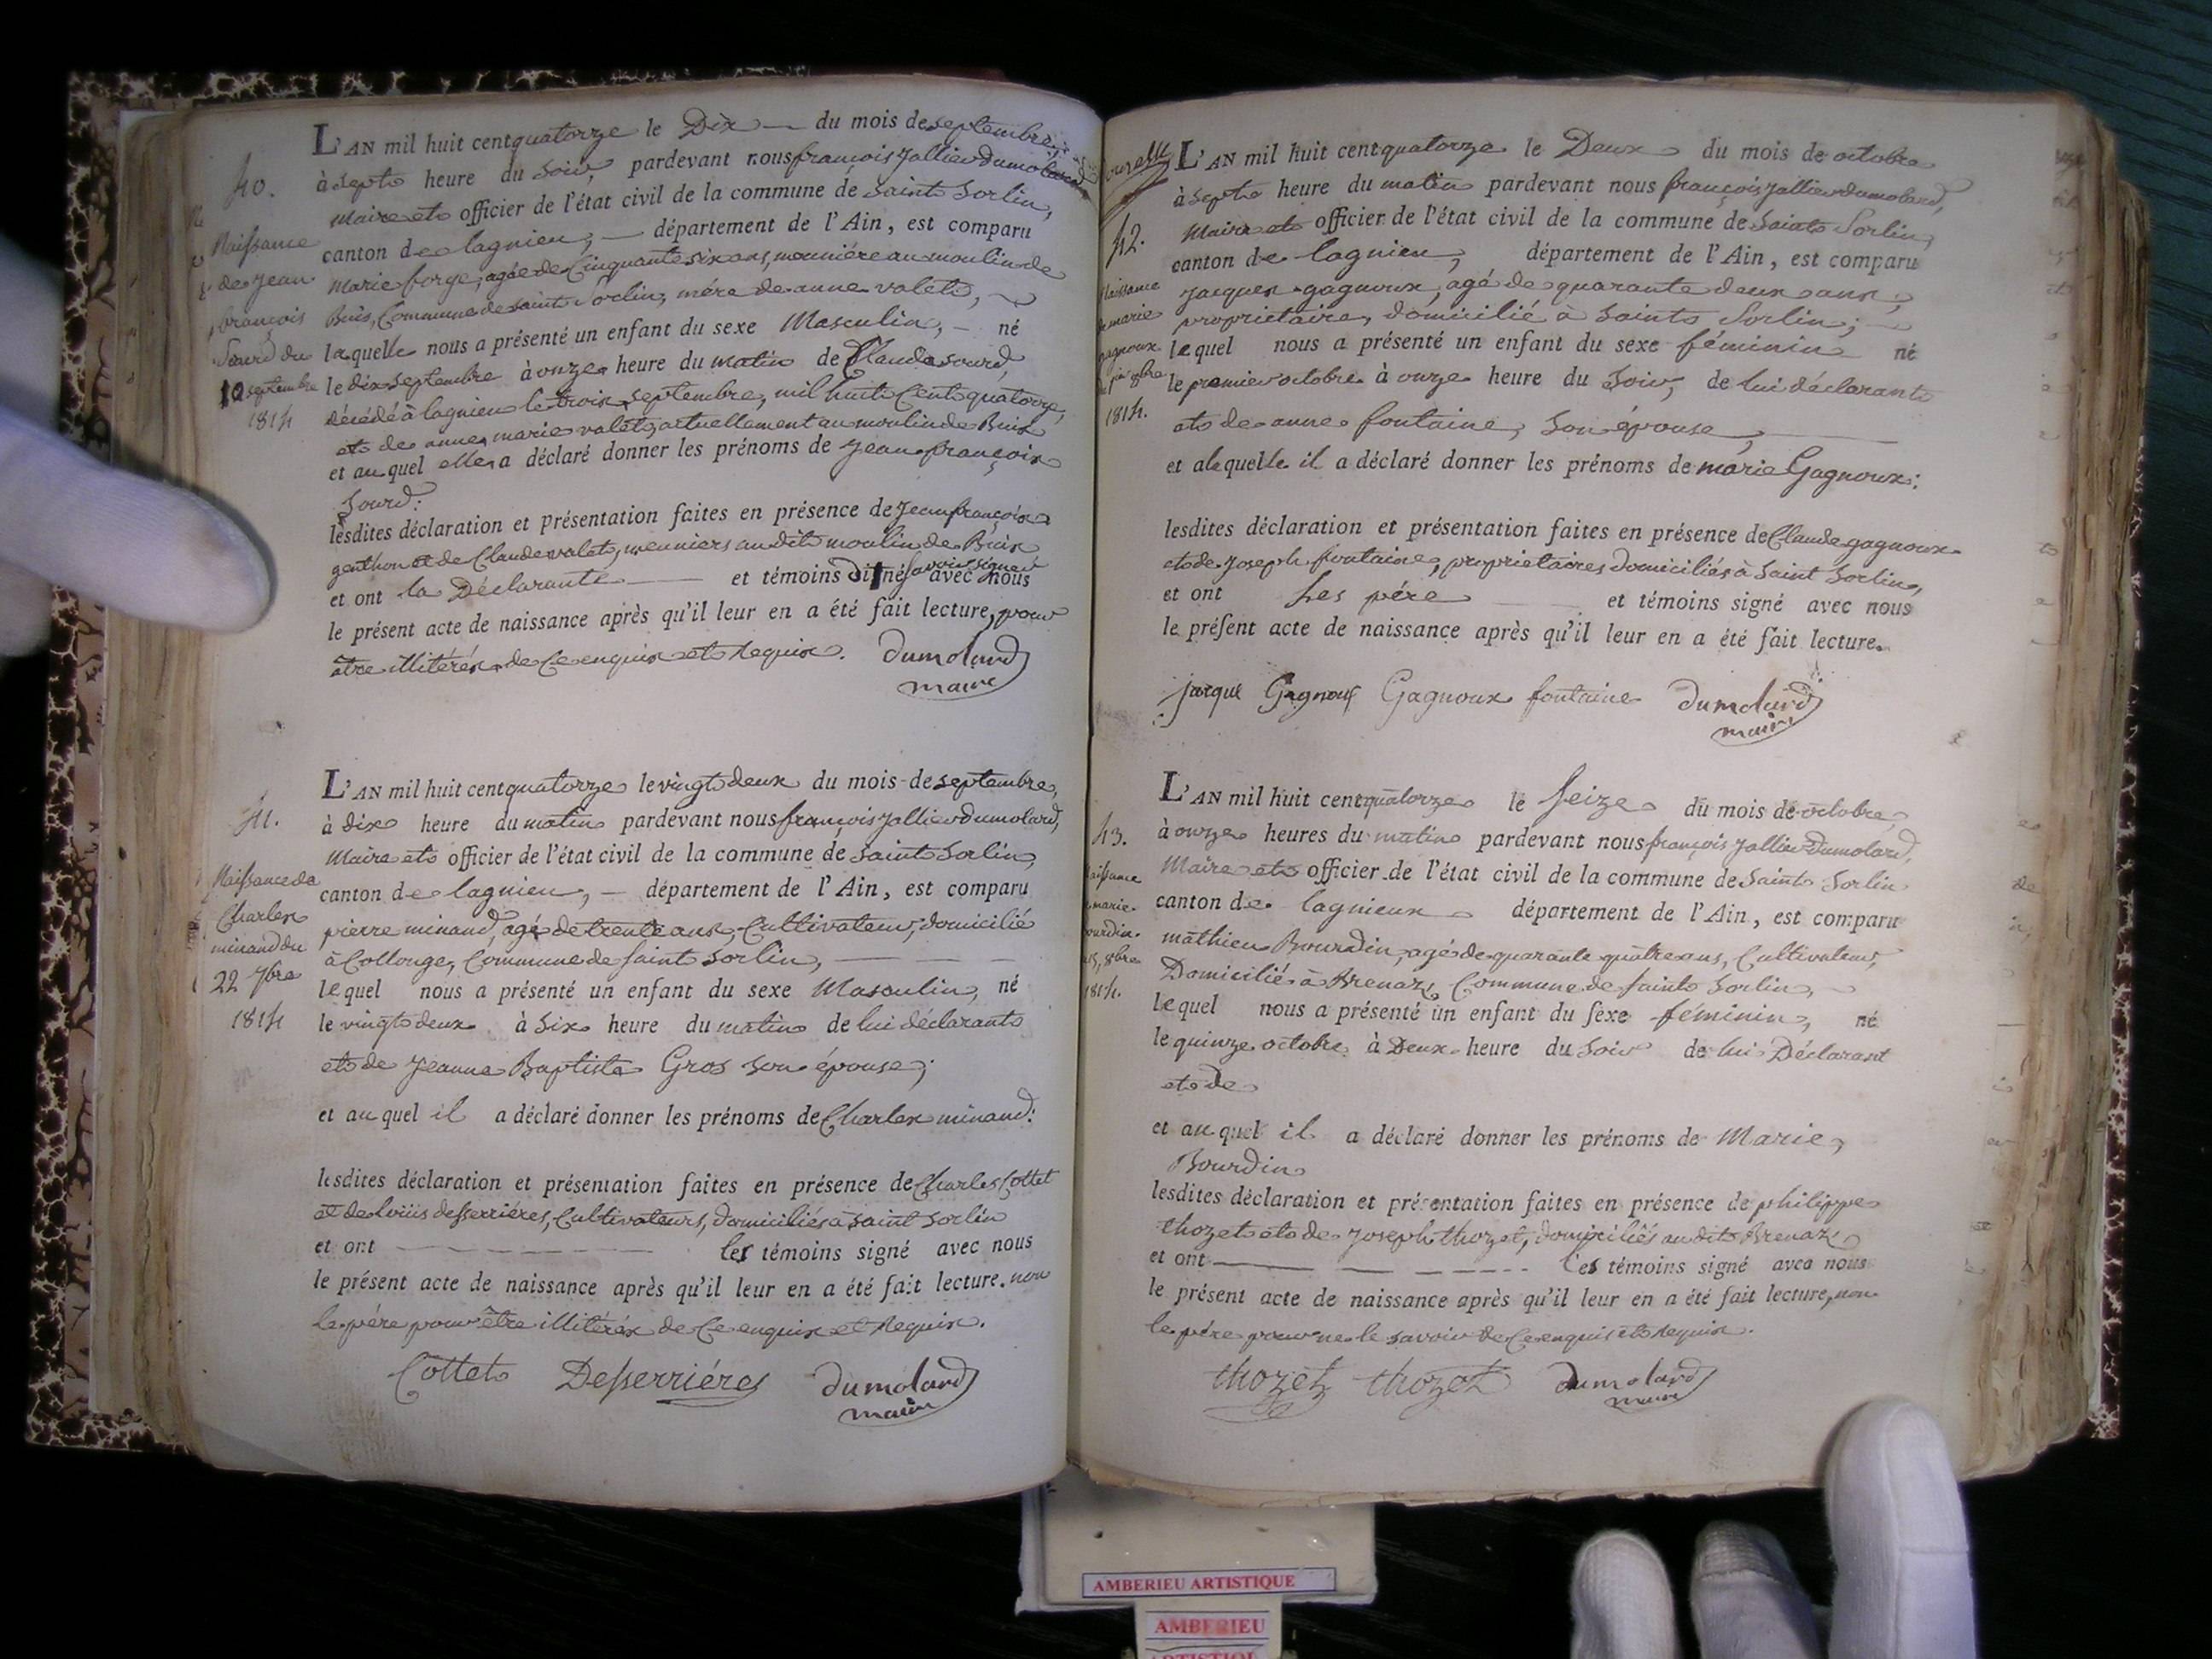 40.
Naissance
de Jean
françois
Sourd du
10 septembre
1814
L'AN mil huit cent quatorze le Dix du mois de septembre,
à sept heure du soir, pardevant nous françois Jallier dumolard
Maire et officier de l'état civil de la commune de saint Sorlin,
canton de lagnieu, département de l'Ain, est comparu
Marie forge, agée de Cinquante six ans, meunière au moulin de
Buis, Commune de saint Sorlin, mère de anne valet,
laquelle nous a présenté un enfant du sexe Masculin, né
le dix septembre à onze heure du matin de Claude Sourd,
décédé à lagnieu le trois septembre, mil huit Cent quatorze,
et de anne marie valet, actuellement au moulin de Buis
et au quel elle a déclaré donner les prénoms de Jean françois
Sourd:
lesdites déclaration et présentation faites en présence de Jean françois
genthon et de Claude valet, meuniers au dit moulin de Buis
et ont la Déclarante et témoins dit né savoir signer avec nous
le présent acte de naissance après qu'il leur en a été fait lecture, pour
être illitérés de Ce enquis et Requis. dumolard
maire
41.
Naissance de
Charles
minand du
22 7bre
1814
L'AN mil huit cent quatorze le vingt deux du mois de septembre,
à dix heure du matin pardevant nous françois Jallier Dumolard,
Maire et officier de l'état civil de la commune de saint Sorlin,
canton de lagnieu, département de l'Ain, est comparu
pierre minand, agé de trente ans, Cultivateur, domicilié
à Collonge, Commune de saint Sorlin,
lequel nous a présenté un enfant du sexe Masculin, né
le vingt deux à six heure du matin de lui déclarant
et de Jeanne Baptiste Gros son épouse;
et au quel il a déclaré donner les prénoms de Charles minand:
lesdites déclaration et présentation faites en présence de Charles Cottet
et de louis desserrières, Cultivateurs, domiciliés à saint Sorlin
et ont les témoins signé avec nous
le présent acte de naissance après qu'il leur en a été fait lecture. non
le père pour être illitéréx de Ce enquis et Requis.
Cottet Desserriéres dumolard
maire
42.
Naissance
de marie
gagnoux
du 1er 8bre
1814.
L'AN mil huit cent quatorze le Deux du mois de octobre
à sept heure du matin pardevant nous françois Jallier dumolard,
Maire et officier de l'état civil de la commune de Saint Sorlin,
canton de lagnieu, département de l'Ain, est comparu
Jacques gagnoux, agé de quarante deux ans,
proprietaire, domicilié à Saint Sorlin;
lequel nous a présenté un enfant du sexe féminin né
le premier octobre à onze heure du Soir, de lui déclarant
et de anne fontaine, Son épouse,
et alaquelle il a déclaré donner les prénoms de marie Gagnoux:
lesdites déclaration et présentation faites en présence de Claude gagnoux
et de Joseph fontaine, proprietaires domiciliés à Saint Sorlin,
et ont Les père et témoins signé avec nous
le présent acte de naissance après qu'il leur en a été fait lecture.
jacque Gagnoux Gagnoux fontaine dumolard
maire
43.
Naissance
marie
Bourdin
15, 8bre
1814.
L'AN mil huit cent quatorze le Seize du mois de octobre,
à onze heures du matin pardevant nous françois Jallier Dumolard,
Maire et officier de l'état civil de la commune de Saint Sorlin
canton de lagnieux département de l'Ain, est comparu
mathieu Bourdin, agé de quarante quatre ans, Cultivateur,
Domicilié à Brenaz, Commune de saint Sorlin,
Lequel nous a présenté un enfant du sexe féminin, né
le quinze octobre à Deux heure du Soir de lui Déclarant
et de
et au quel il a déclaré donner les prénoms de Marie,
Bourdin
lesdites déclaration et présentation faites en présence de philippe
thozet et de Joseph thozet, domiciliés au dit Brenaz
et ont les témoins signé avec nous
le présent acte de naissance après qu'il leur en a été fait lecture, non
le père pour ne le savoir de Ce enquis et Requis.
thozet thozet dumolard
maire
AMBERIEU ARTISTIQUE
AMBERIEU
ARTISTIQUE